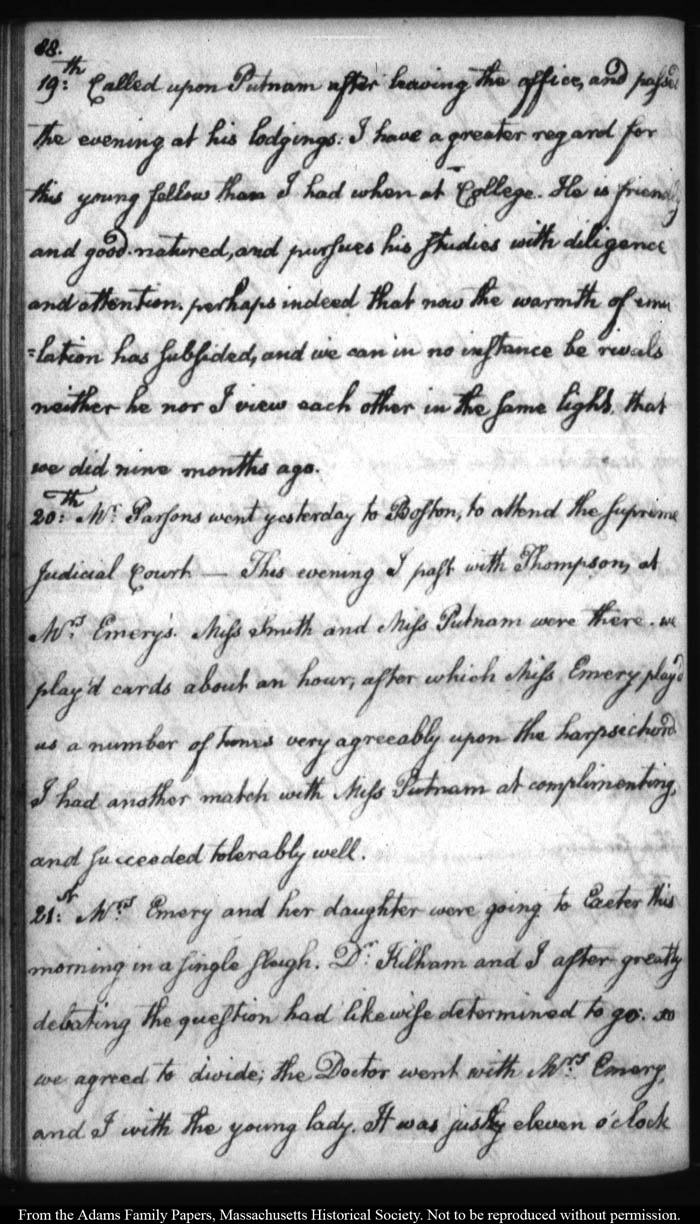 88.
19:th Called upon Putnam after leaving the office, and pass'd
the evening at his lodgings: I have a greater regard for
this young fellow than I had when at College. He is friendly
and good-natured, and pursues his studies with diligence
and attention. perhaps indeed that now the warmth of emu
=lation has subsided, and we can in no instance be rivals
neither he nor I view each other in the same light, that
we did nine months ago.
20:th Mr. Parsons went yesterday to Boston, to attend the supreme
Judicial Court — This evening I past with Thompson, at
Mrs. Emery's. Miss Smith and Miss Putnam were there. we
play'd cards about an hour; after which Miss Emery play'd
us a number of tunes very agreeably upon the harpsichord
I had another match with Miss Putnam at complimenting,
and succeeded tolerably well.
21:st Mrs. Emery and her daughter were going to Exeter this
morning in a single sleigh. Dr. Kilham and I after greatly
debating the question had likewise determined to go: so
we agreed to divide; the Doctor went with Mrs. Emery,
and I with the young lady. It was just eleven o'clock
From the Adams Family Papers, Massachusetts Historical Society. Not to be reproduced without permission.